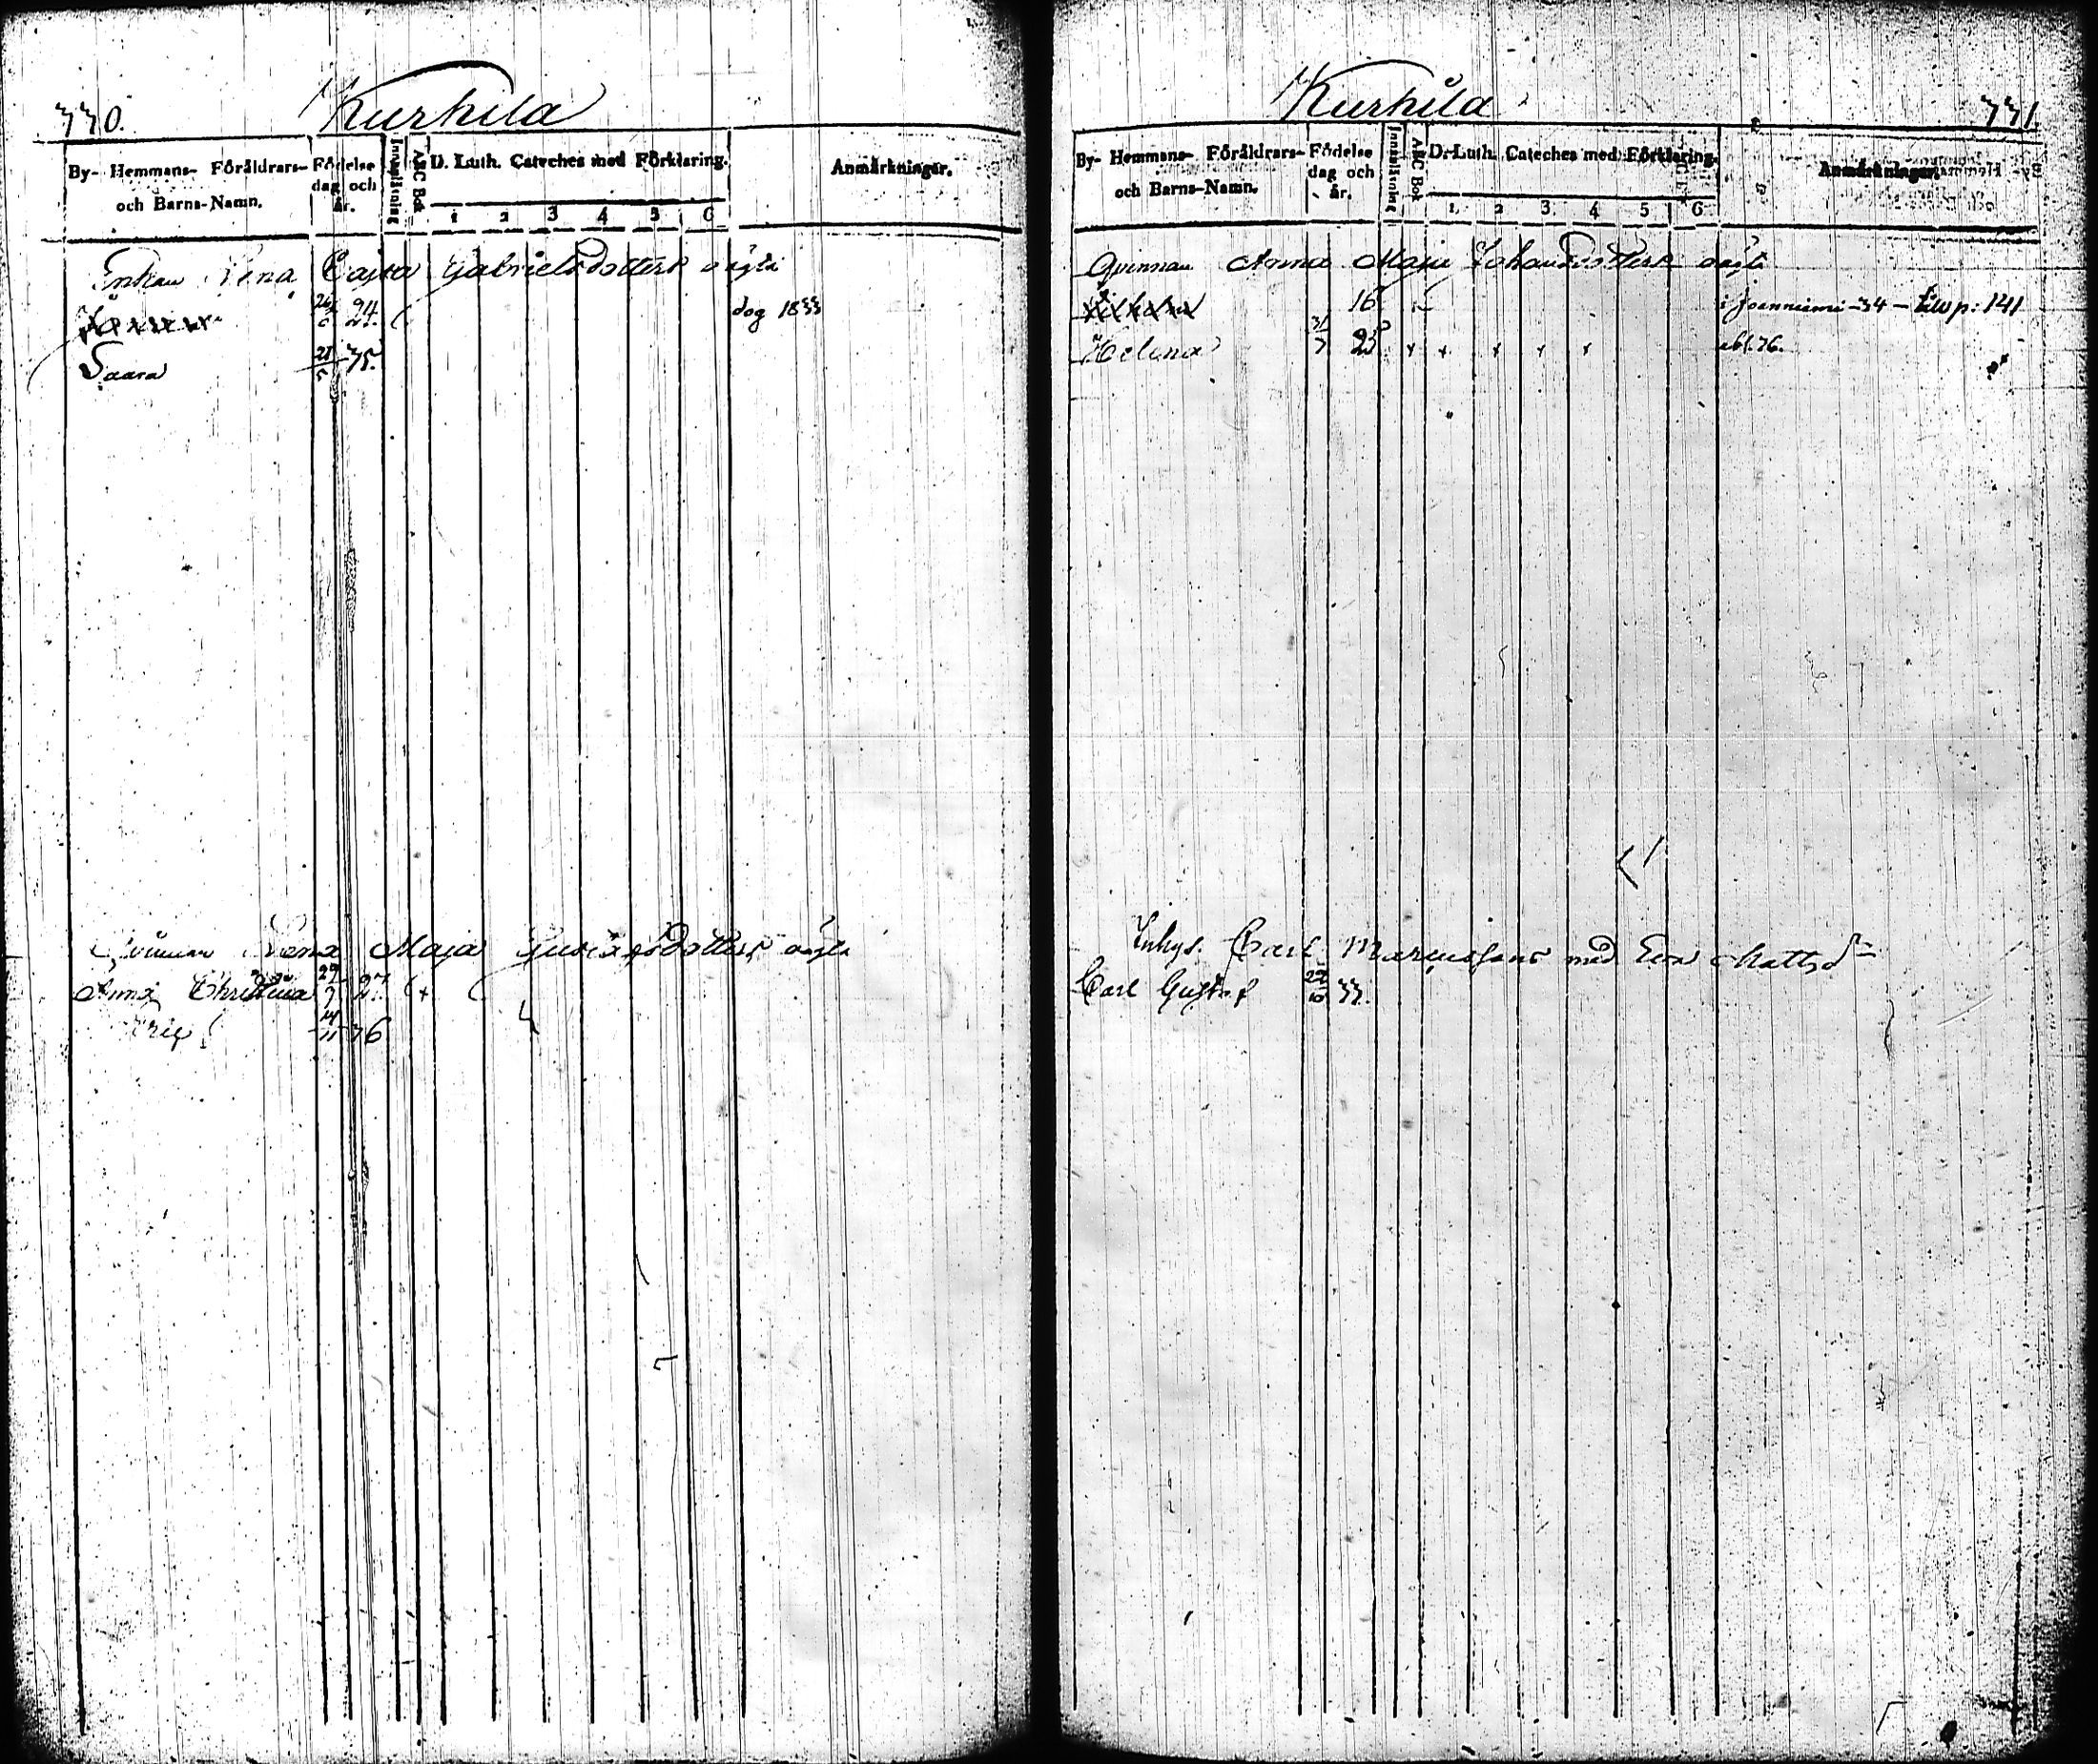 330.
Kurhila
By- Hemmans- Föräldrars- och Barns-Namn.
Födelse dag och år.
Innanläsning
ABC Bok
D. Luth. Cateches med Förklaring.
1 2 3 4 5 6
Anmärkningar.
Enkan Lena Cajsa Gabrielsdotters oägta
26 24. dog 1833
Saara 21/5 35.
Qvinnan Lena Maja Gustafsdotters oägta
Anna Christina 29/9 27. +
Eric 14/11 36
Kurhila
331
By- Hemmans- Föräldrars- och Barns-Namn.
Födelse dag och år.
Innanläsning
ABC Bok
D. Luth. Cateches med Förklaring.
1. 2 3. 4 5 6.
Anmärkningar.
Qvinnan Anna Maja Johansdotters oägta
16. i Joenniemi -34 - p: 141
Helena 31/7 25 + + + + +
Inhys. Carl Marcussons med Eva Mattsd
Carl Gustaf 29/10 33.